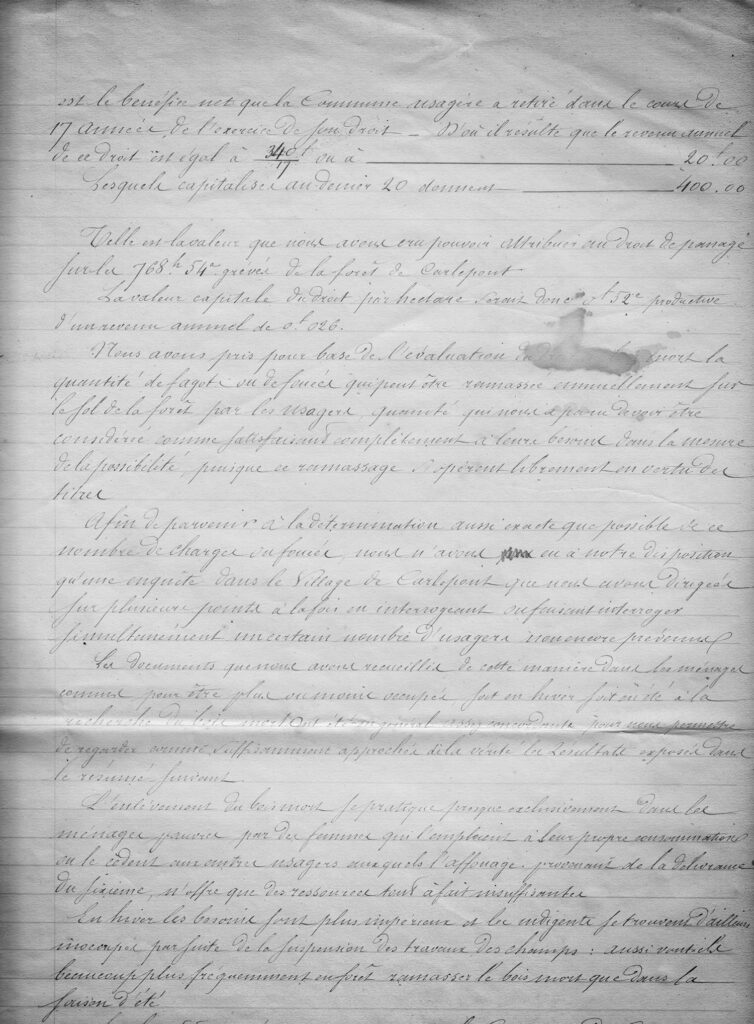 est le bénéfice net que la Commune usagère a retiré dans le cours de
17 années de l'exercice de son droit — D'où il résulte que le revenu annuel
de ce droit est égal à 340f/17 ou à ——— 20f.00
Lesquels capitalisés au denier 20 donnent ——— 400.00
Telle est la valeur que nous avons cru pouvoir attribuer au droit de panage
sur les 768h 54a grévés de la forêt de Carlepont
La valeur capitale du droit par hectare serait donc 0f 52c productive
d'un revenu annuel de 0f.026.
Nous avons pris pour base de l'évaluation du mort la
quantité de fagots ou de fouées qui peut être ramassée annuellement sur
le sol de la forêt par les usagers, quantité qui nous a paru devoir être
considérée comme satisfaisant complètement à leurs besoins dans la mesure
de la possibilité, puisque ce ramassage s'opèrent librement en vertu des
titres
Afin de parvenir à la détermination aussi exacte que possible de ce
nombre de charges ou fouées, nous n'avons eu à notre disposition
qu'une enquête dans le Village de Carlepont que nous avons dirigée
sur plusieurs points à la fois en interrogeant ou faisant interroger
simultanément un certain nombre d'usagers non encore prévenus
Les documents que nous avons recueillis de cette manière dans les ménages
connus pour être plus ou moins occupés, soit en hiver soit en été à la
recherche du bois mort ont été en général assez concordants pour nous permettre
de regarder comme suffisamment approchés de la vérité les résultats exposés dans
le résumé suivant.
L'enlèvement du bois mort se pratique presque exclusivement dans les
ménages pauvres par des femmes qui l'emploient à leur propre consommation
ou le cèdent aux autres usagers auxquels l'affouage provenant de la délivrance
du sixième, n'offre que des ressources tout à fait insuffisantes
En hiver les besoins sont plus impérieux et les indigents se trouvent d'ailleurs
inoccupés par suite de la suspension des travaux des champs : aussi vont-ils
beaucoup plus fréquemment en forêt ramasser le bois mort que dans la
saison d'été